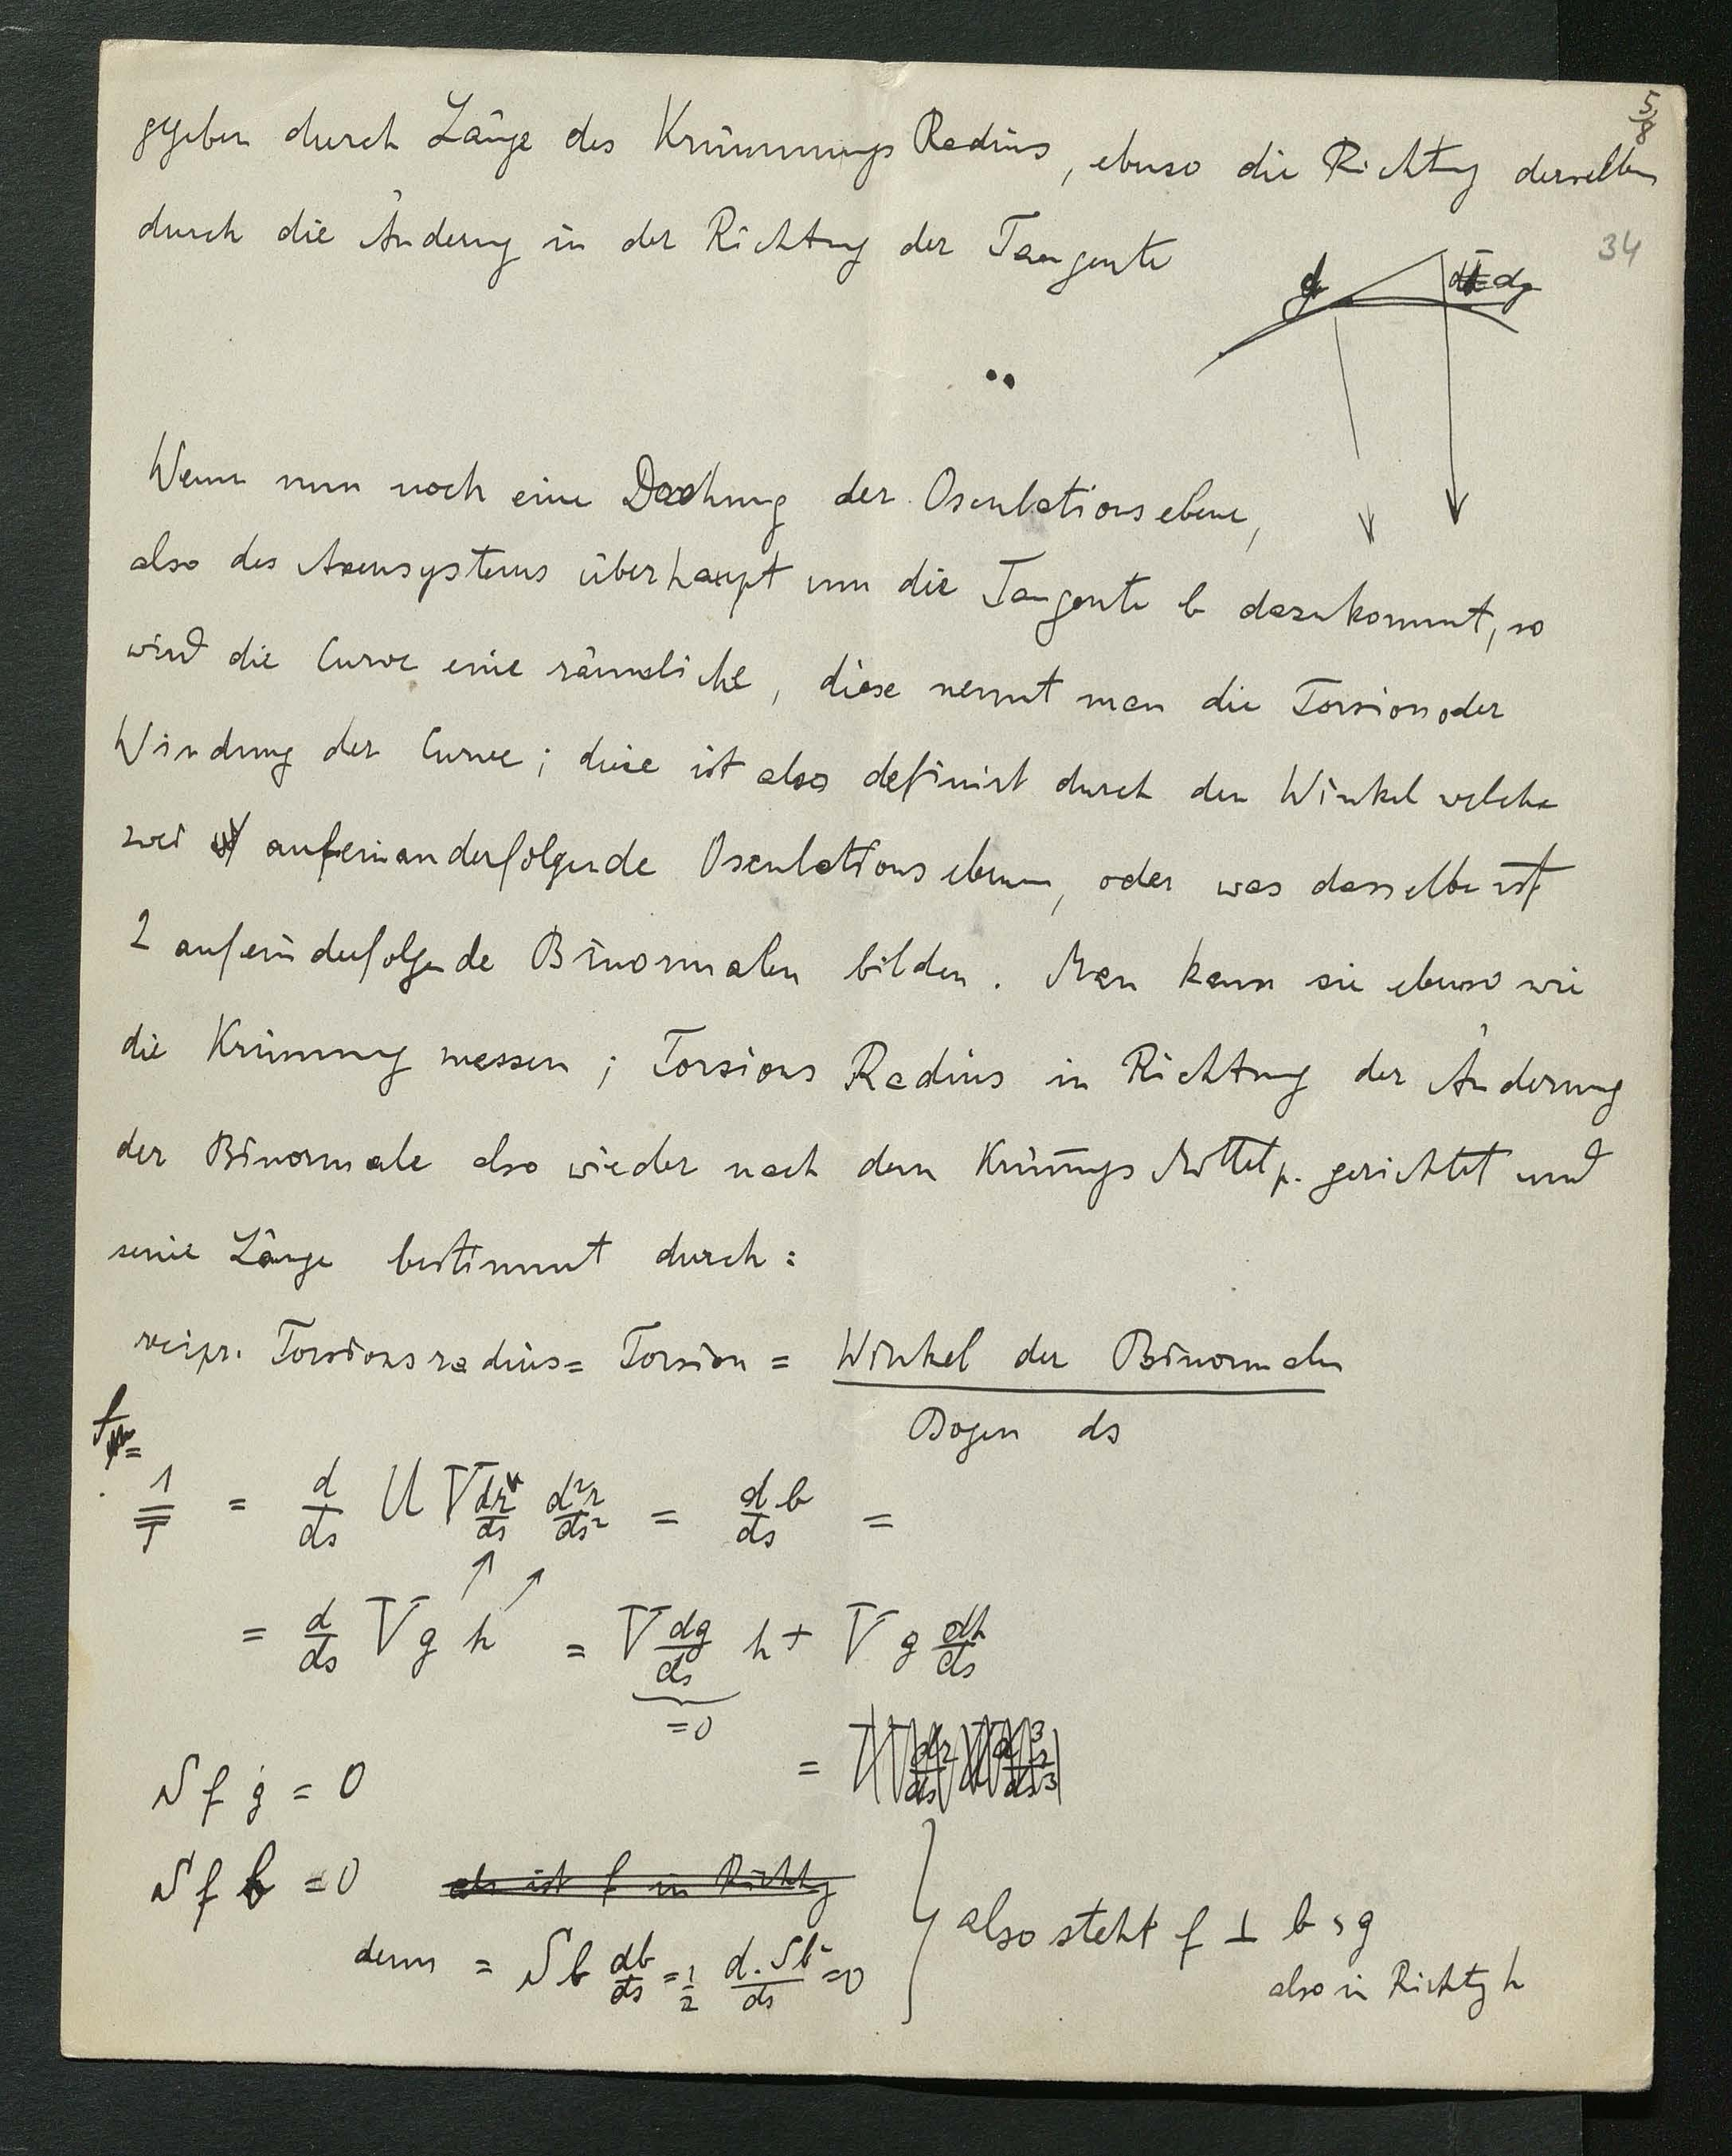 5/8
gegeben durch Länge des Krümmungs Radius, ebenso die Richtung derselben
durch die Änderung in der Richtung der Tangente
34
g dg
Wenn nun noch eine Drehung der Osculationsebene,
also des Axensystems überhaupt um die Tangente b dazukommt, so
wird die Curve eine räumliche, diese nennt man die Torsion oder
Windung der Curve; diese ist also definirt durch den Winkel welche
zwei aufeinanderfolgende Osculationsebenen, oder was dasselbe ist
2 aufeinderfolgende Binormalen bilden. Man kann sie ebenso wie
die Krümmung messen; Torsions Radius in Richtung der Änderung
der Binormale also wieder nach dem Krümgs Mittelp. gerichtet und
seine Länge bestimmt durch:
recipr. Torsionsradius = Torsion = Winkel der Binormalen
Bogen ds
f =
1/T = d/ds U V dr/ds d²r/ds² = d/ds b =
= d/ds V g h = V dg/ds h + V g dh/ds
= 0
=
S f g = 0
S f b = 0 also ist f in Richtg
denn = S b db/ds = 1/2 d. S b²/ds = 0
also steht f ⊥ b, g
also in Richtg h